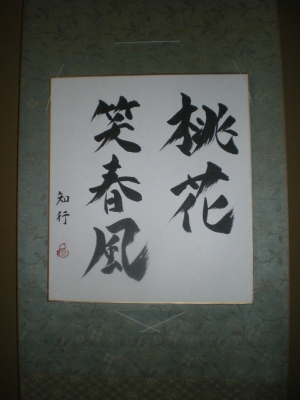 桃花
笑春風
知行